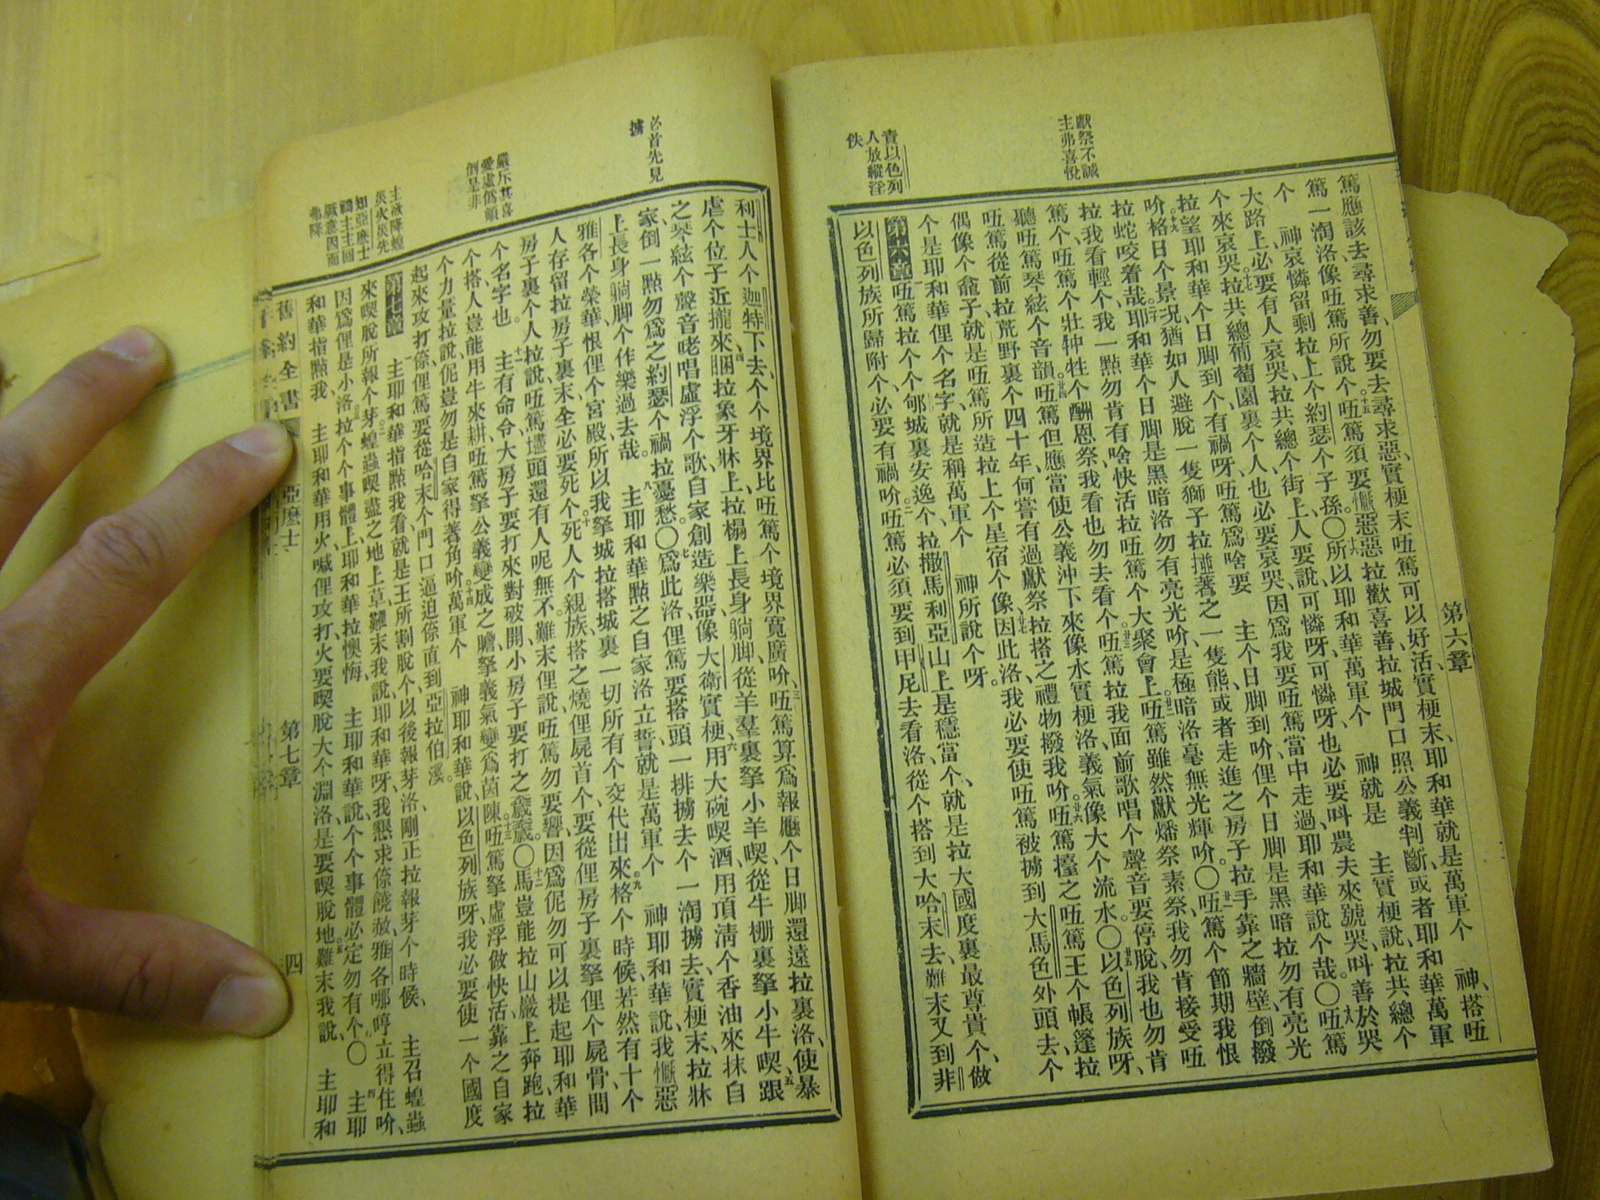 獻祭不誠
主弗喜悅
責以色列
人放縱淫
佚
篤應該去尋求善、勿要去尋求惡、實梗末、㕶篤可以好活、實梗末、耶和華就是萬軍个 神、搭㕶
篤一淘洛、像㕶篤所說个、㕶篤須要慨惡惡、拉歡喜善、拉城門口照公義判斷、或者耶和華萬軍
个 神哀憐留剩拉上个約瑟个子孫○所以耶和華萬軍个 神就是 主實梗說、拉共總个
大路上必要有人哀哭、拉共總个街上、人要說、可憐呀、可憐呀、也必要呌農夫來號哭、呌善於哭
个來哀哭、拉共總葡萄園裏个人也必要哀哭、因爲我要㕶篤當中走過、耶和華說个、哉○㕶篤
拉望耶和華个日脚到个、有禍呀、㕶篤爲啥要 主个日脚到吤、俚个日脚是黑暗、拉勿有亮光
吤、格日个景况、猶如人避脫一隻獅子、拉撞著之一隻熊、或者走進之房子、拉手靠之牆壁、倒撥
拉蛇咬着哉、耶和華个日脚是黑暗洛勿有亮光吤、是極暗洛毫無光輝吤○㕶篤个節期我恨
拉我看輕个、我一點勿肯有啥快活拉㕶篤个大聚會上、㕶篤雖然獻燔祭素祭、我勿肯接受、㕶
篤个㕶篤个壯牪牲个酬恩祭、我看也勿去看个、㕶篤拉我面前歌唱个聲音要停脫、我也勿肯
聽㕶篤琴絃个音韻、㕶篤但應當使公義沖下來像水、實梗洛義氣像大个流水○以色列族呀、
㕶篤從前拉荒野裏个四十年、何嘗有過獻祭拉搭之禮物撥我吤、㕶篤擡之㕶篤王个帳篷拉
偶像个龕子、就是㕶篤所造拉上个星宿个像、因此洛我必要使㕶篤被擄到大馬色外頭去、个
个是耶和華俚个名字就是稱萬軍个 神所說个呀
第六章 㕶篤拉个个郇城裏安逸个、拉撒馬利亞山上是穩當个、就是拉大國度裏最尊貴个、做
以色列族所歸附个、必要有禍吤、㕶篤必須要到甲尼去看洛、從个搭到大哈末去、難末又到非
第六章
必首先見
擄
嚴斥其喜
愛虛僞顚
倒是非
主欲降蝗
災火災先
知亞麽士
禱主主回
厥意因而
弗降
利士人个迦特下去、个个境界比㕶篤个境界寬廣吤、㕶篤算爲報應个日脚還遠拉裏洛、使暴
虐个位子近攏來、睏拉象牙牀上、拉榻上長身躺脚、從羊羣裏拏小羊喫、從牛棚裏拏小牛喫、跟
之琴絃个聲音咾唱虛浮个歌、自家創造樂器、像大衛實梗、用大碗喫酒、用頂淸个香油來抹自
家、倒一點勿爲之約瑟个禍拉憂愁○爲此洛、俚篤要搭頭一排擄去个一淘擄去、實梗末、拉牀
上長身躺脚个作樂過去哉 主耶和華點之自家洛立誓、就是萬軍个 神耶和華說、我慨惡
雅各个榮華、恨俚个宮殿、所以我拏城拉搭城裏一切所有个交代出來、格个時候若然有十个
人存留拉房子裏末、全必要死个、死人个親族搭之燒俚屍首个、要從俚房子裏拏俚个屍骨間
房子裏个人拉說、㕶篤壗頭還有人呢無不、難末俚說、㕶篤勿要響、因爲伲勿可以提起耶和華
个名字也 主有命令、大房子要打來對破開、小房子要打之歲歲○馬豈能拉山巖上奔跑拉
个搭人豈能用牛來耕、㕶篤拏公義變成之膽、拏義氣變爲茵陳、㕶篤拏虛浮做快活、靠之自家
个力量拉說、伲豈勿是自家得著角吤、萬軍个 神耶和華說、以色列族呀、我必要使一个國度
起來攻打倷、俚篤要從哈末个門口逼迫倷、直到亞拉伯溪
第七章 主耶和華指點我看、就是王所割脫个以後報芽洛剛正拉報芽个時候、 主召蝗蟲
來喫脫所報个芽、蝗蟲喫盡之地上草、難末我說、耶和華呀、我懇求倷饒赦、雅各哪哼立得住吤、
因爲俚是小洛、拉个个事體上、耶和華拉懊悔 主耶和華說、个个事體必定勿有个○ 主耶
和華指點我、 主耶和華用火喊俚攻打、火要喫脫大个淵洛、是要喫脫地、難末我說、 主耶和
舊約全書
亞麽士
第七章
四